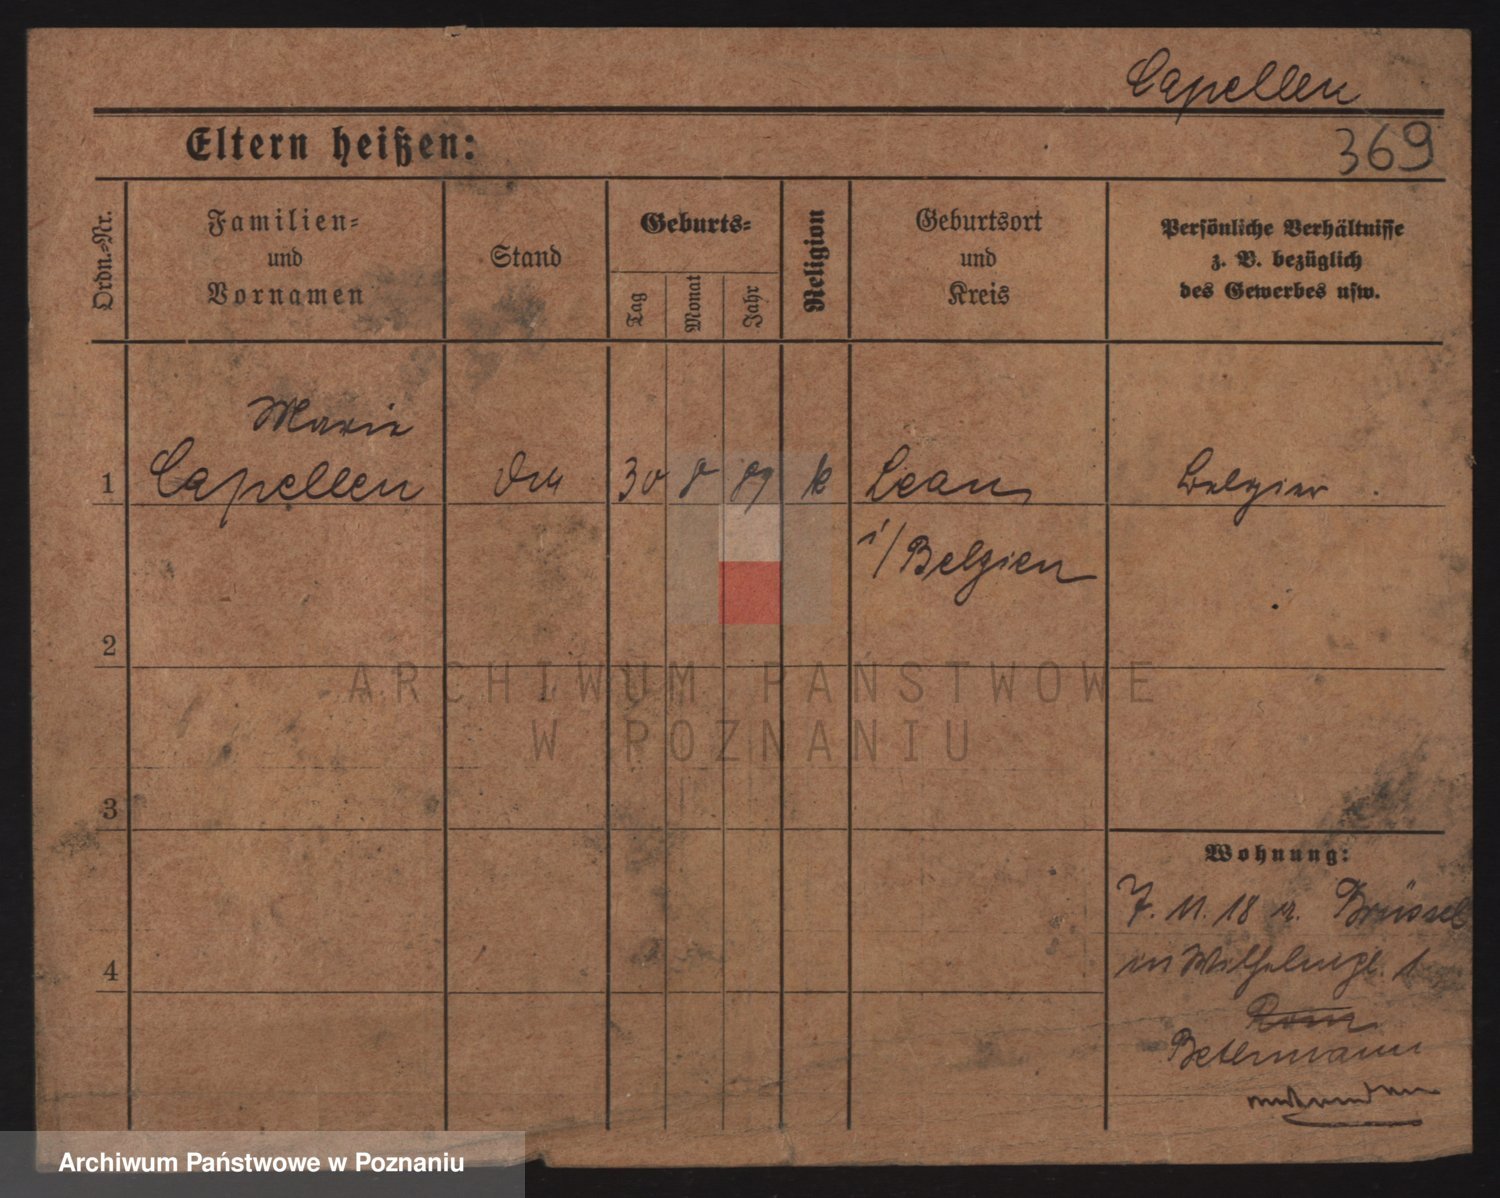 Capellen
369
Eltern heißen:
Ordn.-Nr.
Familien-
und
Vornamen
Stand
Geburts-
Tag
Monat
Jahr
Religion
Geburtsort
und
Kreis
Persönliche Verhältnisse
z. B. bezüglich
des Gewerbes usw.
Marie
1 Capellen 30 8 89 k Lean Belgier
i/Belgien
2
ARCHIWUM PAŃSTWOWE
W POZNANIU
3
Wohnung:
7. 11. 18 v. Brüssel
in Wilhelmpl. 1
4
Betermann
Archiwum Państwowe w Poznaniu